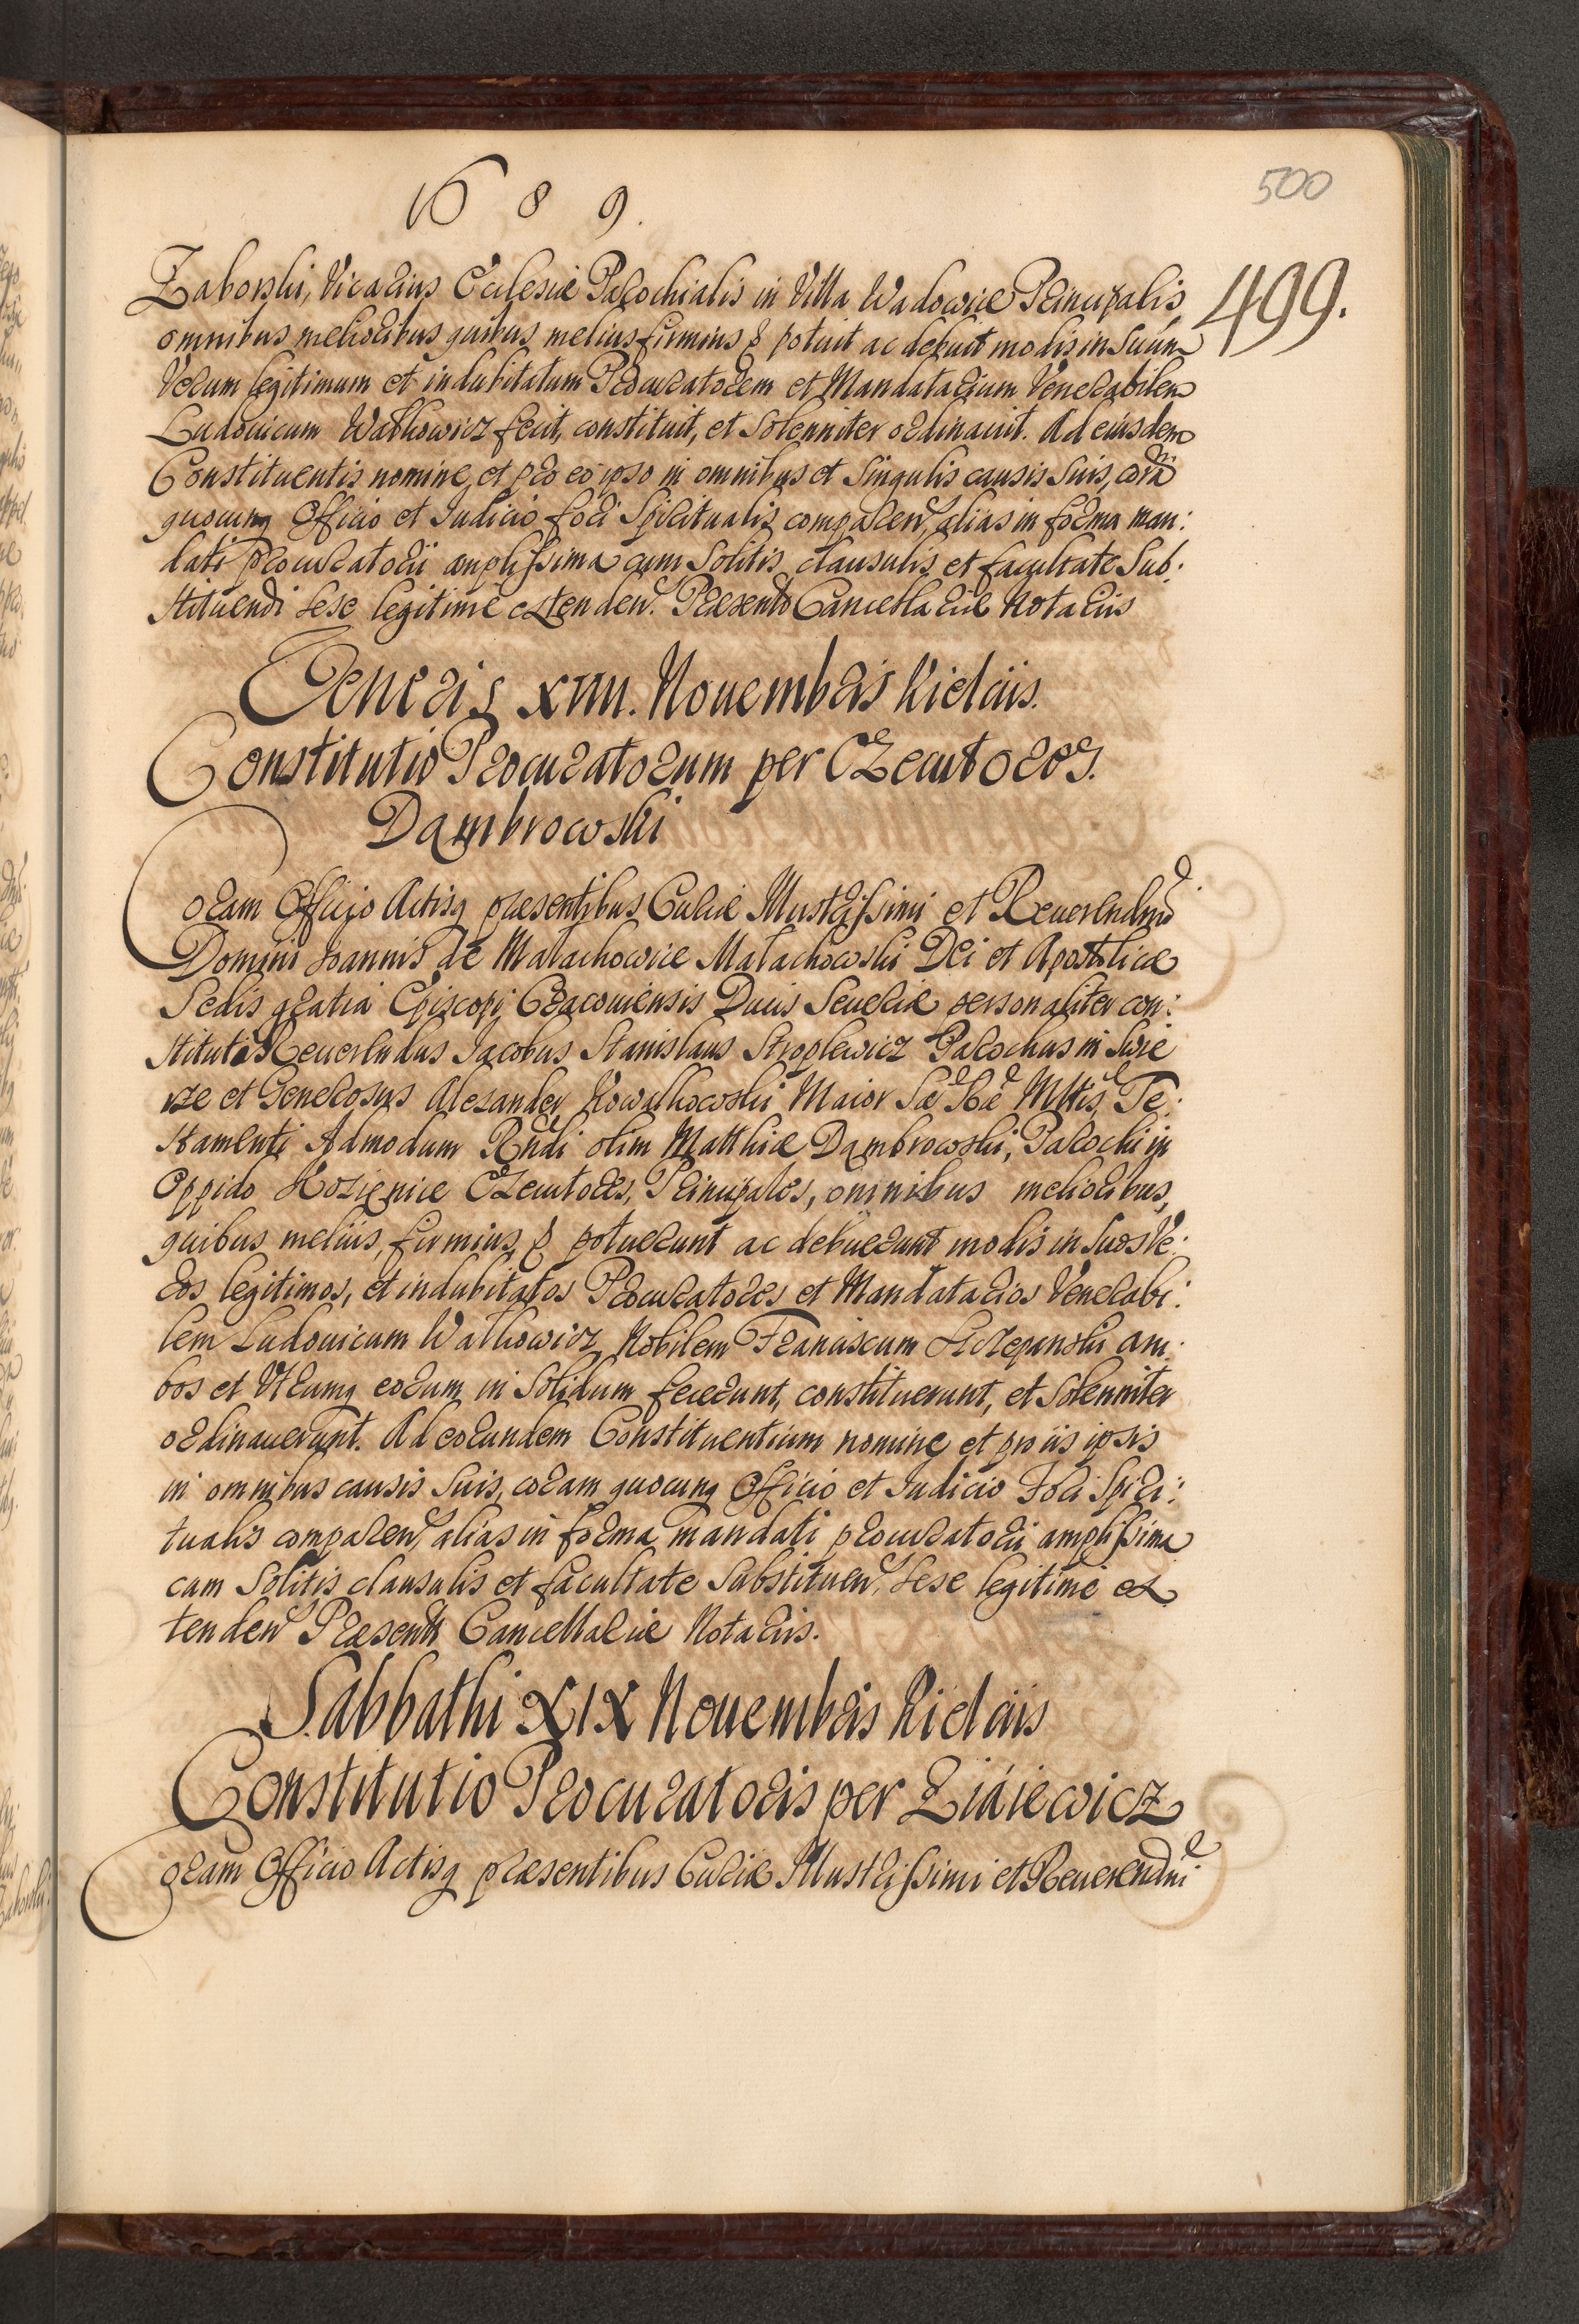 1689.
500
499.
Zaborski, Vicarius Ecclesiæ Parochialis in Villa Wadowice Principalis,
omnibus melioribus quibus melius firmius & potuit ac debuit modis in Suum
Verum legitimum et indubitatum Procuratorem et Mandatarium Venerabilem
Ludouicum Wathowicz fecit, constituit, et Solenniter ordinauit. Ad eiusdem
Constituentis nomine, et pro eo ipso in omnibus et Singulis causis Suis, corā
quocunq Officio et Iudicio fori Spiritualis comparen, alias in forma man:
dati procuratorii amplissima cum Solitis clausulis et facultate Sub:
stituendi Sese legitime extenden. Præsent Cancellariæ Notariis
Veneris XVIII. Nouembris Kielciis.
Constitutio Procuratorum per Executores.
Dambrowski
Coram Officio Actisq præsentibus Curiæ Illustrissimi et Reuerendmi
Domini Joannis de Małachowice Małachowski Dei et Apostolicæ
Sedis gratia Episcopi Cracouiensis Ducis Seueriæ personaliter con:
stituti Reuerendus Jacobus Stanislaus Stroplewicz Parochus in Swie
rze et Generosus Alexander Kowalkowski Maior Sæ Ræ Mttis, Te:
stamenti Admodum Rndi olim Matthiæ Dambrowski, Parochi in
Oppido Kozienice Executores, Principales, omnibus melioribus,
quibus meliüs, firmius, & potuerunt ac debuerunt modis in Suos Ve:
ros legitimos, et indubitatos Procuratores et Mandatarios Venerabi:
lem Ludouicum Wathowicz, Nobilem Franciscum Szczepanski am:
bos et Vtrumq eorum in Solidum fecerunt, constituerunt, et Solenniter
ordinauerunt. Ad eorundem Constituentium nomine et pro iis ipsis
in omnibus causis Suis, coram quocunq Officio et Iudicio Fori Spiri:
tualis comparen, alias in forma mandati procuratorii amplissima
cum Solitis clausulis et facultate Substituen, Sese legitime ex
tenden Præsent Cancellariæ Notariis.
Sabbathi XIX Nouembris Kielciis
Constitutio Procuratoris per Zidiewicz
Coram Officio Actisq præsentibus Curiæ Illustrissimi et Reuerendmi